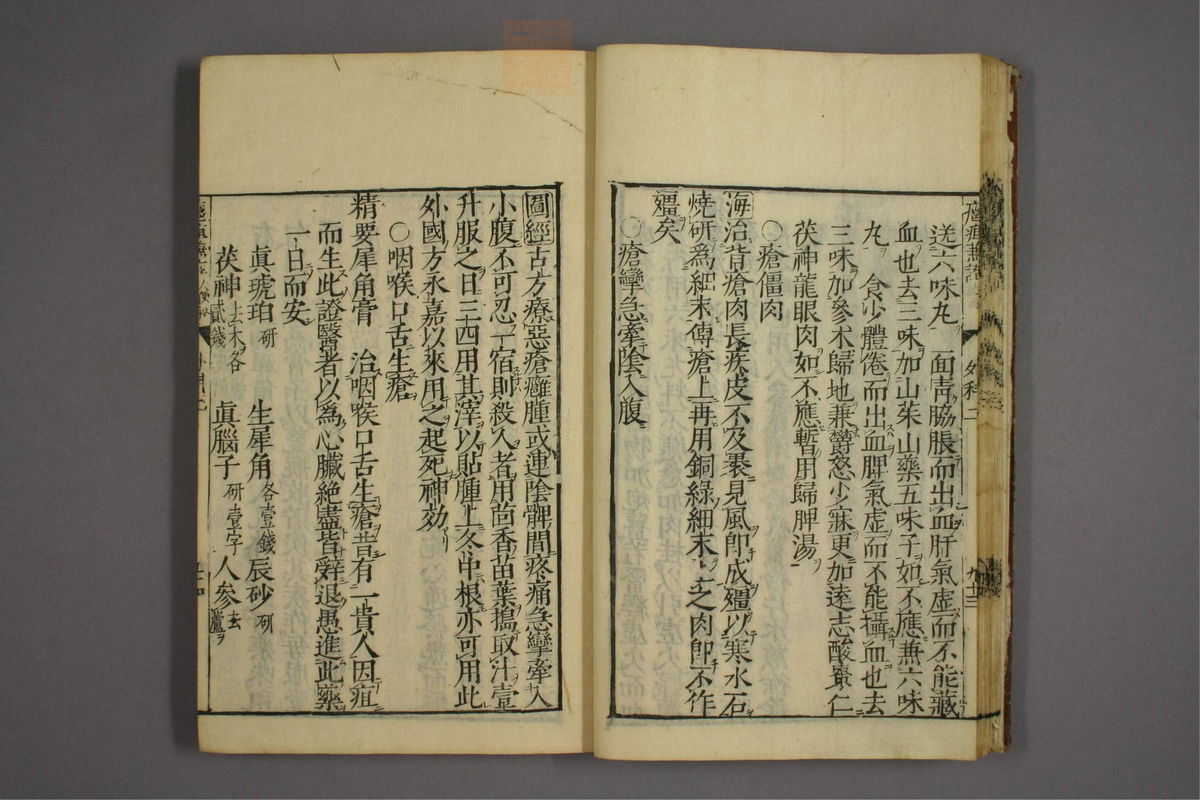 送六味丸 一面青脇脹而出血肝氣虚而不能藏
血也去三味加山茱山藥五味子如不應兼六味
丸 食少體倦而出血脾氣虚而不能攝血也去
三味加參朮歸地兼欝怒少寐更加遠志酸棗仁
茯神龍眼肉如不應暫用歸脾湯
○瘡僵肉
海治背瘡肉長疾皮不及褁見風即成殭以寒水石
燒研爲細末傅瘡上再用銅綠細末上之肉即不作
殭矣
○瘡攣急牽陰入腹
外科二
九十三
圖經古方療惡瘡癰腫或連陰髀間疼痛急攣牽入
小腹不可忍一宿則殺人者用茴香苗葉搗取汁壹
升服之日三四用其滓以貼腫上冬中根亦可用此
外國方永嘉以來用之起死神効
○咽喉口舌生瘡
精要犀角膏 治咽喉口舌生瘡昔有一貴人因疽
而生此證醫者以爲心臟絶盡皆辭退愚進此藥
一日而安
眞琥珀研 生犀角各壹錢 辰砂研
茯神去木各貳錢 眞腦子研壹字 人參去蘆